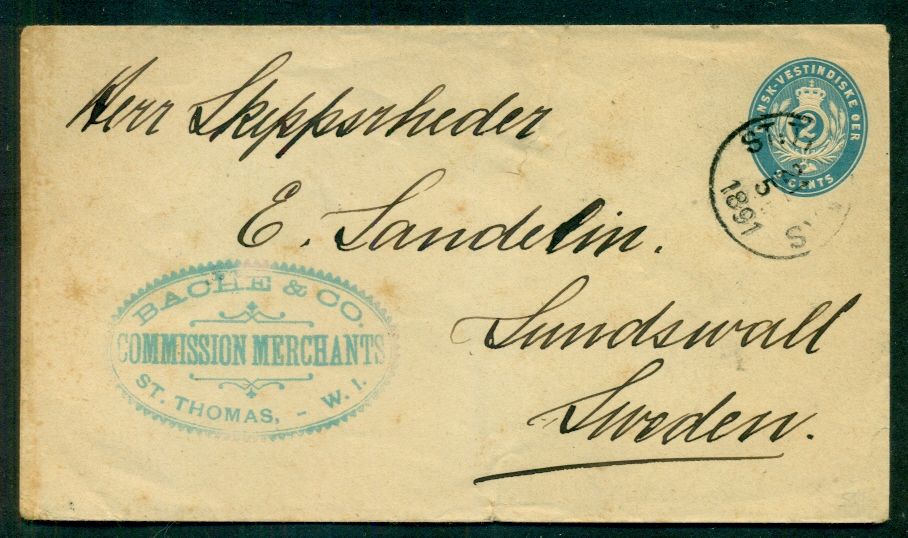 Herr Skeppsrheder
E. Sandelin.
Sundswall
Sweden.
BACHE & CO.
COMMISSION MERCHANTS
ST. THOMAS, - W. I.
NSK-VESTINDISKE OER
2
CENTS
ST. TH
5
1891